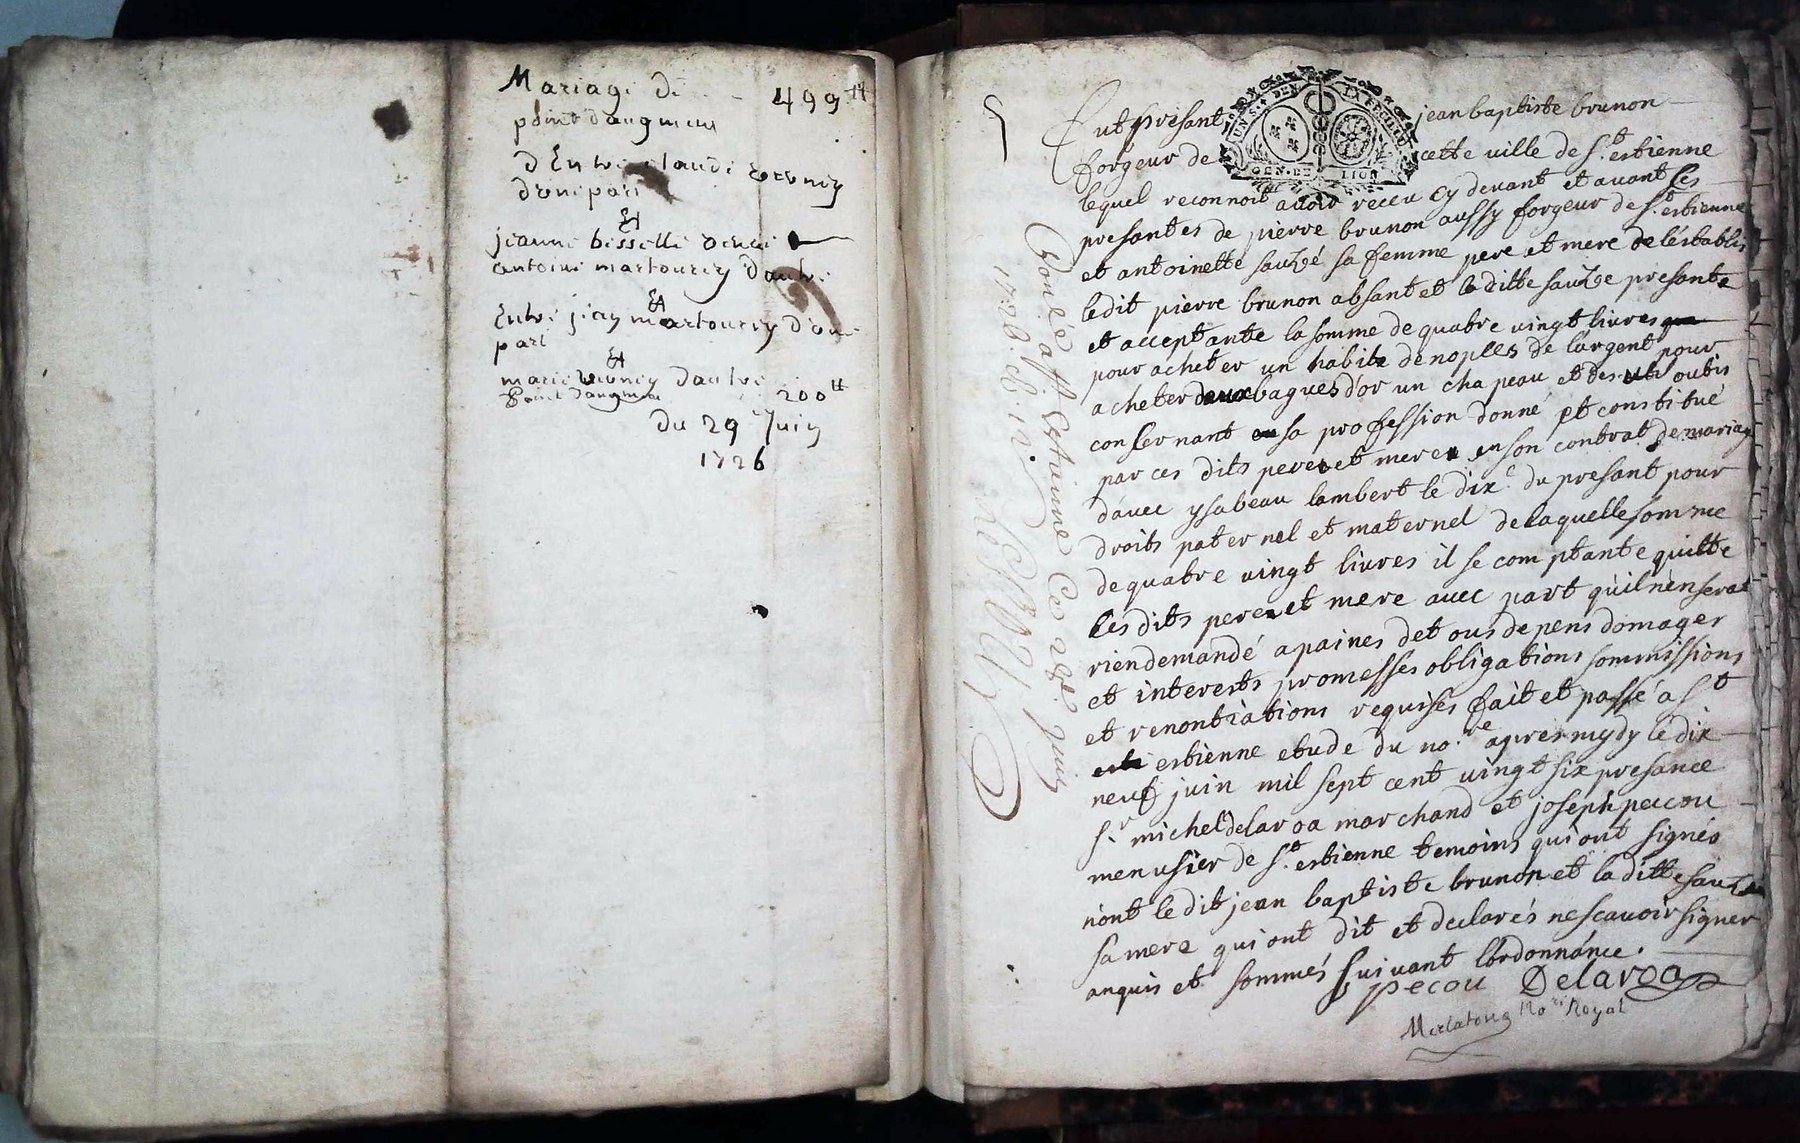 Mariage de 499 tt
point daugment
d'Entre claude
d'une part
Et
jeanne bisselli veuve
antoine martourey d'autre
Et
Entre jean martourey d'une
part
Et
marie d'autre
point daugment 200 tt
du 29 Juin
1726
ut presant jean baptiste brunon
UN S. 4 DEN. LA FEUILLE
GEN. DE LION
forgeur de cette ville de St. estienne
lequel reconnoit avoir receu cy devant et avant ces
presantes de pierre brunon aussy forgeur de St. estienne
et antoinette sauzé sa femme pere et mere
ledit pierre brunon absant et laditte sauze presante
et acceptante la somme de quatre vingt livres
pour acheter un habit de noples de l'argent pour
acheter deux bagues d'or un chapeau et des outis
consernant sa profession donné et constitué
par ces dits pere et mere en son contrat de mariage
d'avec ysabeau lambert le dix e du presant pour
droits paternel et maternel de laquelle somme
de quatre vingt livres il se comptante quitte
les dits pere et mere avec part qu'il n'en serat
rien demandé a paines de tous depens domages
et interests promesses obligations sommissions
et renontiations requises fait et passé a St
estienne etude du no.re apres mydy le dix
neuf juin mil sept cent vingt six presance
Sr. michel delaroa marchand et joseph pecou
menusier de St. estienne temoins qui ont signés
non ledit jean baptiste brunon et laditte sauze
sa mere qui ont dit et declarés ne scavoir signer
enquis et sommés suivant l'ordonnance.
pecou Delaroa
No.re Royal
Estienne Ce 29e. juin
1726